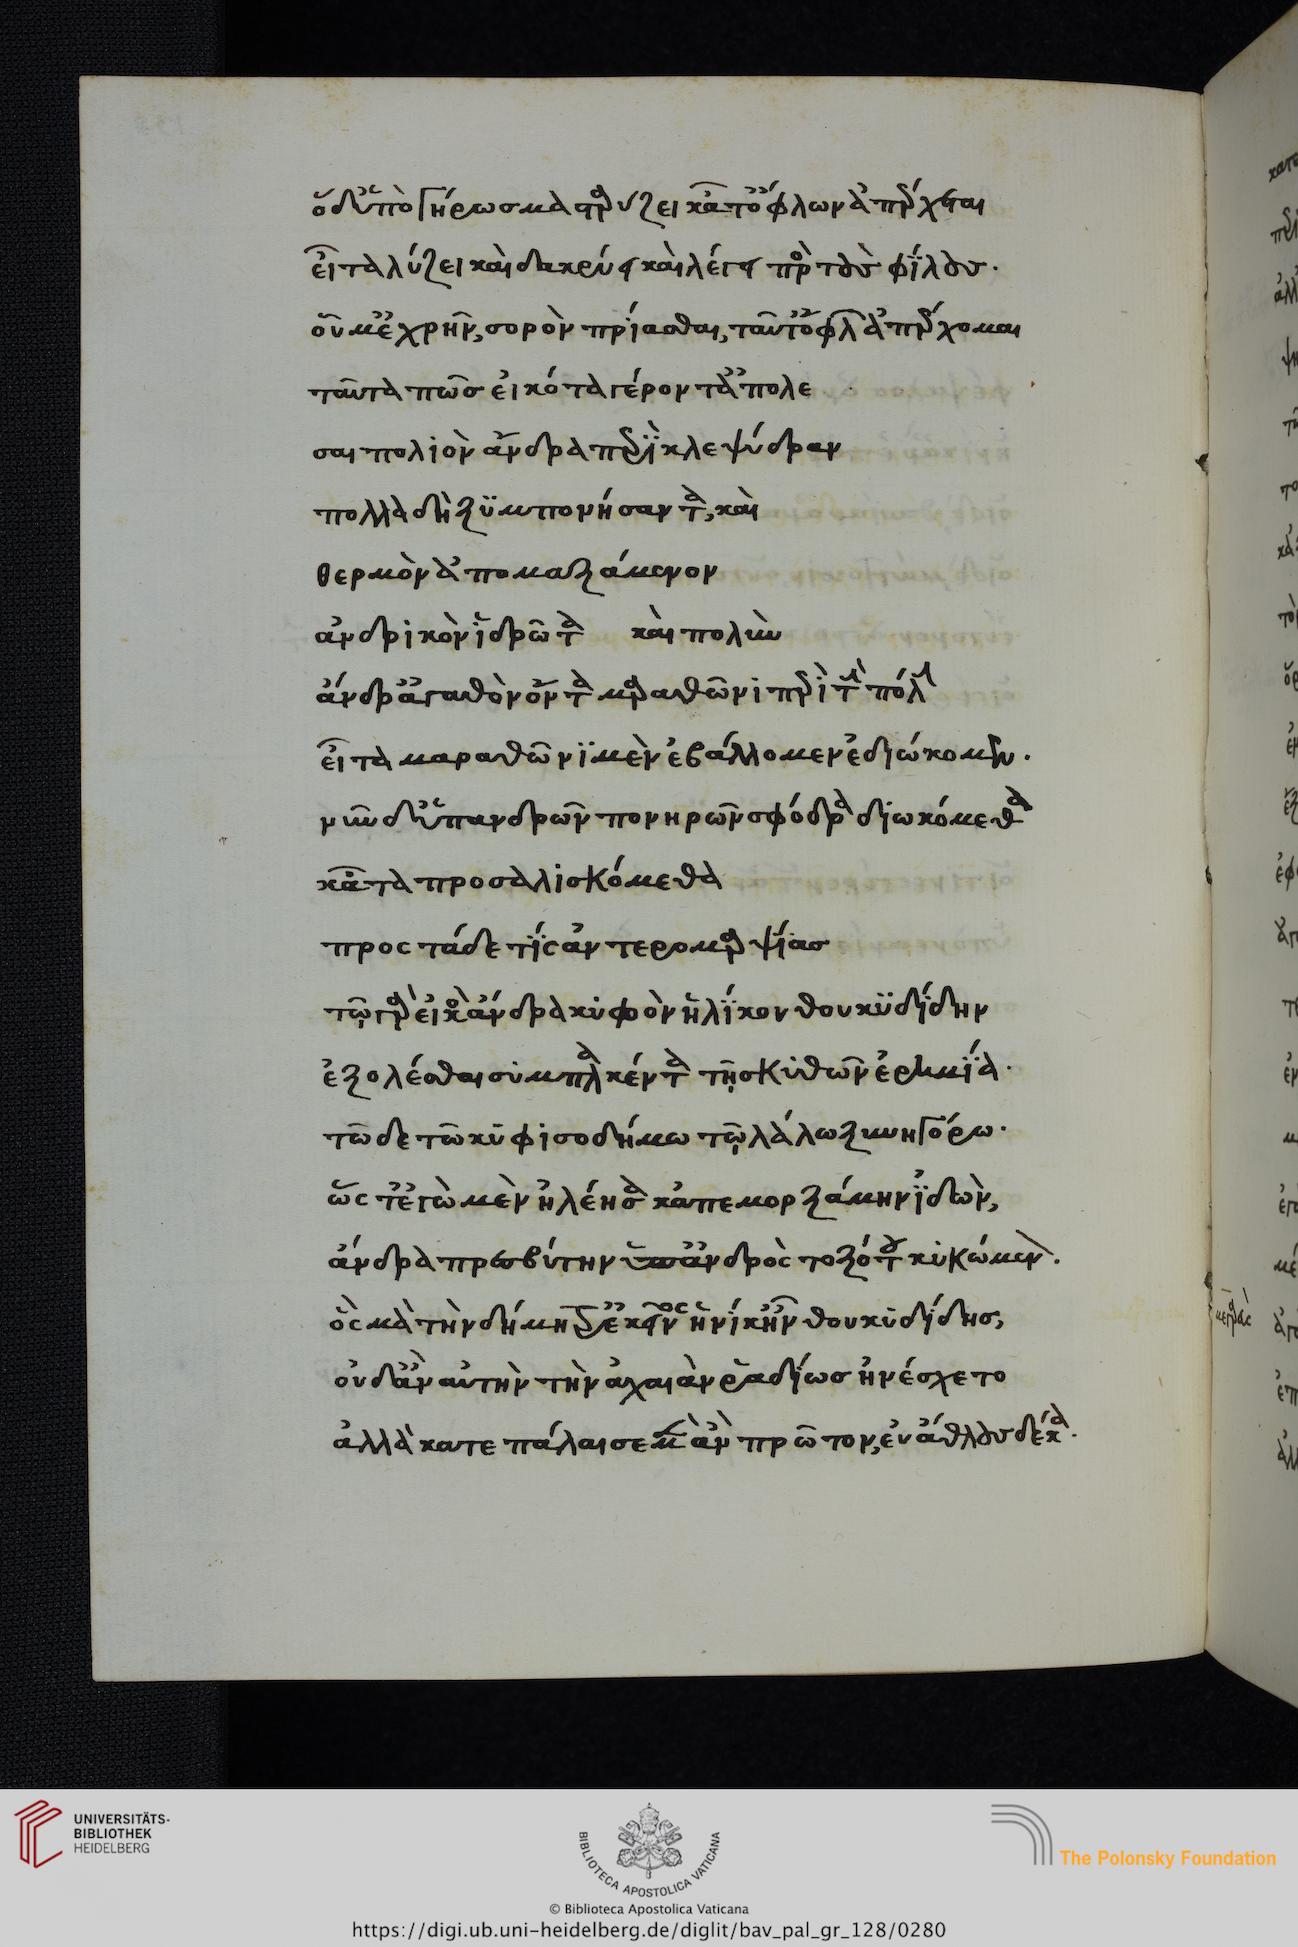 ὁ δ' ὑπὸ γήρως μασταρύζει κᾆτ' ὀφλὼν ἀπέρχεται
εἶτα λύζει καὶ δακρύει καὶ λέγει πρὸς τοὺς φίλους.
οὗ μ' ἐχρῆν, σορὸν πρίασθαι, τοῦτ' ὀφλὼν ἀπέρχομαι
ταῦτα πῶς εἰκότα γέροντ' ἀπολέ
σαι πολιὸν ἄνδρα περὶ κλεψύδραν
πολλὰ δὴ ξυμπονήσαντα, καὶ
θερμὸν ἀπομαξάμενον
ἀνδρικὸν ἱδρῶτα καὶ πολὺν
ἄνδρ' ἀγαθὸν ὄντα μαραθῶνι περὶ τὴν πόλιν
εἶτα μαραθῶνι μὲν ἐβάλλομεν ἐδιώκομεν.
νῦν δ' ὑπ' ἀνδρῶν πονηρῶν σφόδρα διωκόμεθα
κᾆτα προσαλισκόμεθα
προς τάδε τίς ἀντερεῖ μαρψίας
τῷ γὰρ εἰκὸς ἄνδρα κυφὸν ἡλίκον θουκυδίδην
ἐξολέσθαι συμπλακέντα τῇ σκυθῶν ἐρημίᾳ.
τῶδε τῶ κηφισοδήμω τῷ λάλω ξυνηγόρω.
ὥς τ' ἐγὼ μὲν ἠλέησα κἀπεμορξάμην ἰδὼν,
ἄνδρα πρεσβύτην ὑπ' ἀνδρὸς τοξότου κυκώμενον.
ὃς μὰ τὴν δήμητρ' ἐκεῖνος ἡνίκ' ἦν θουκυδίδης,
οὐδ' ἂν αὐτὴν τὴν ἀχαιὰν ῥᾳδίως ἠνέσχετο
ἀλλὰ κατεπάλαισε μὲν ἂν πρῶτον, εὐάθλους δέκα.
UNIVERSITÄTS-
BIBLIOTHEK
HEIDELBERG
BIBLIOTECA APOSTOLICA VATICANA
The Polonsky Foundation
© Biblioteca Apostolica Vaticana
https://digi.ub.uni-heidelberg.de/diglit/bav_pal_gr_128/0280